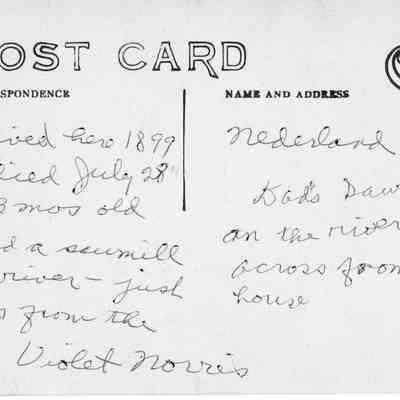 POST CARD
SPONDENCE
ived here 1899
died July 28"
3 mos old
d a sawmill
river - just
s from the
Violet Norris
NAME AND ADDRESS
Nederland
Dad's Saw
on the river
across from
house